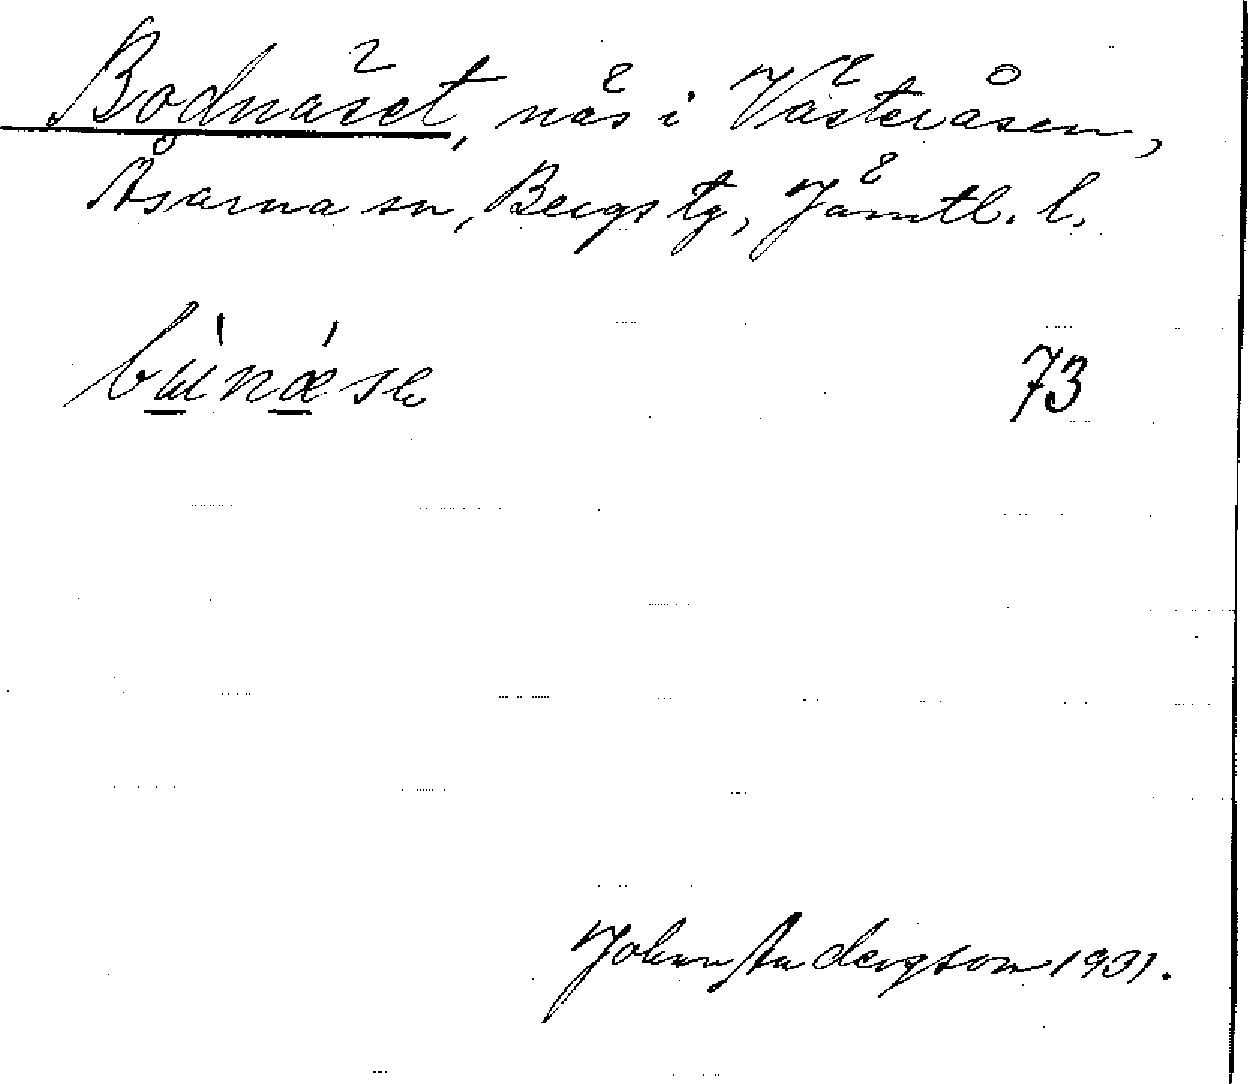 Bodnäset, näs i Västeråsen,
Åsarna sn, Bergs tg, Jämtl. l.
73
Johan Andersson 1931.